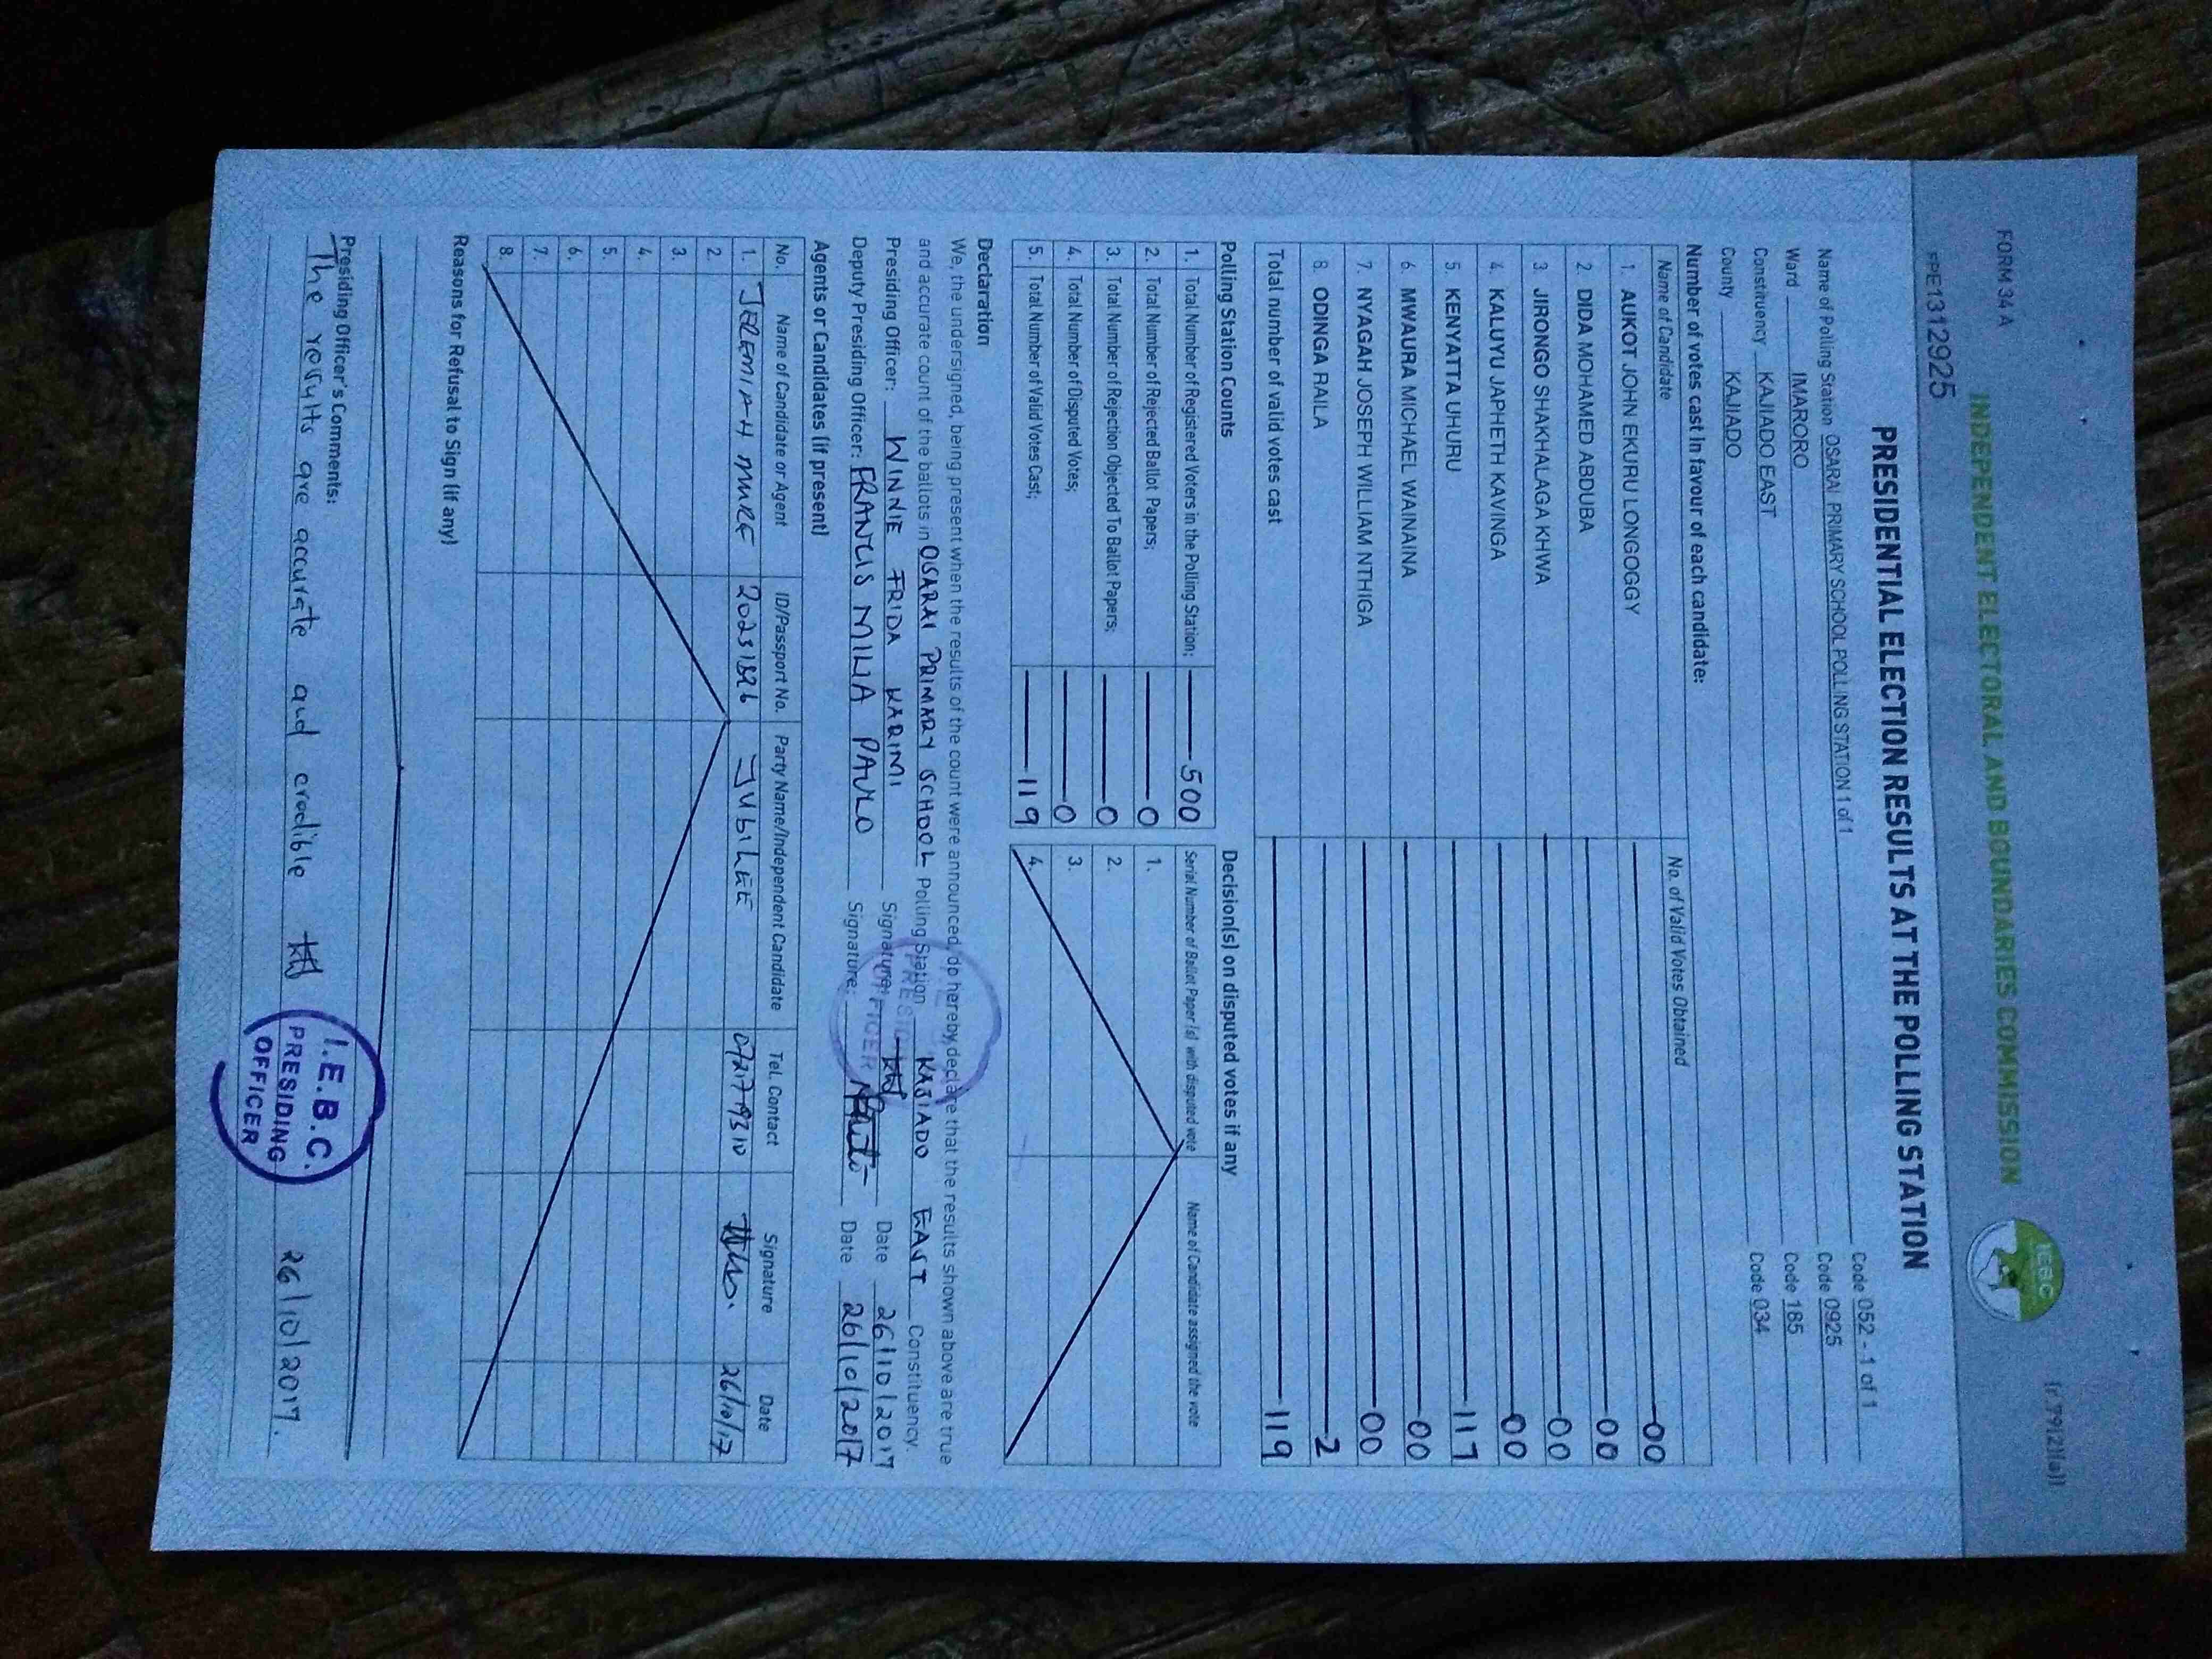 FORM 34 A
(r.79(2)(a))
INDEPENDENT ELECTORAL AND BOUNDARIES COMMISSION
IEBC
PRESIDENTIAL ELECTION RESULTS AT THE POLLING STATION
Name of Polling Station OSARAI PRIMARY SCHOOL POLLING STATION 1 of 1 Code 052 - 1 of 1
Ward IMARORO Code 0925
Constituency KAJIADO EAST Code 185
County KAJIADO Code 034
Number of votes cast in favour of each candidate:
Name of Candidate No. of Valid Votes Obtained
1. AUKOT JOHN EKURU LONGOGGY 00
2. DIDA MOHAMED ABDUBA 00
3. JIRONGO SHAKHALAGA KHWA 00
4. KALUYU JAPHETH KAVINGA 00
5. KENYATTA UHURU 117
6. MWAURA MICHAEL WAINAINA 00
7. NYAGAH JOSEPH WILLIAM NTHIGA 00
8. ODINGA RAILA 2
Total number of valid votes cast 119
Polling Station Counts Decision(s) on disputed votes if any
1. Total Number of Registered Voters in the Polling Station; 500 Serial Number of Ballot Paper (s) with disputed vote Name of Candidate assigned the vote
2. Total Number of Rejected Ballot Papers; 0 1.
3. Total Number of Rejection Objected To Ballot Papers; 0 2.
4. Total Number of Disputed Votes; 0 3.
5. Total Number of Valid Votes Cast; 119 4.
Declaration
We, the undersigned, being present when the results of the count were announced, do hereby declare that the results shown above are true
and accurate count of the ballots in OSARAI PRIMARY SCHOOL Polling Station KAJIADO EAST Constituency.
Presiding Officer: WINNIE FRIDA KARIMI Signature: Date 26/10/2017
Deputy Presiding Officer: FRANCIS MILIA PAULO Signature: Date 26/10/2017
PRESIDING
OFFICER
Agents or Candidates (if present)
No. Name of Candidate or Agent ID/Passport No. Party Name/Independent Candidate Tel. Contact Signature Date
1. JEREMIAH JUBILEE 26/10/17
2.
3.
4.
5.
6.
7.
8.
Reasons for Refusal to Sign (if any)
Presiding Officer's Comments:
The results are accurate and credible 26/10/2017.
I.E.B.C.
PRESIDING
OFFICER